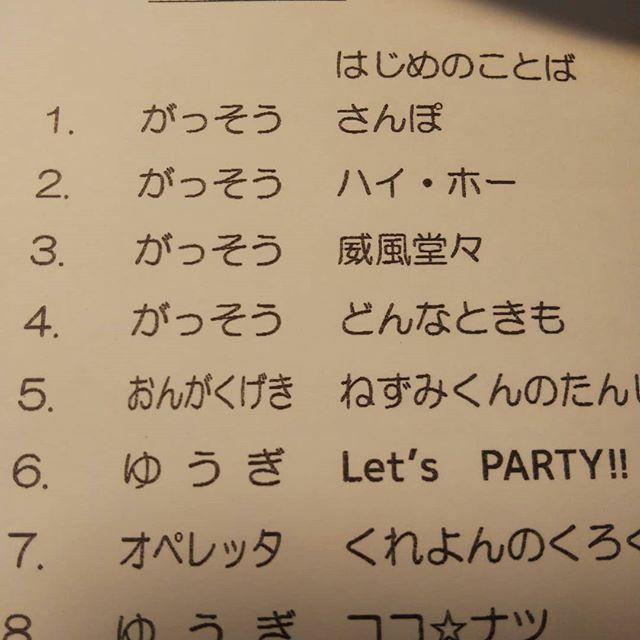 はじめのことば
1. がっそう さんぽ
2. がっそう ハイ・ホー
3. がっそう 威風堂々
4. がっそう どんなときも
5. おんがくげき ねずみくんのたん
6. ゆうぎ Let's PARTY!!
7. オペレッタ くれよんのくろ
8. ゆうぎ ココ☆ナツ